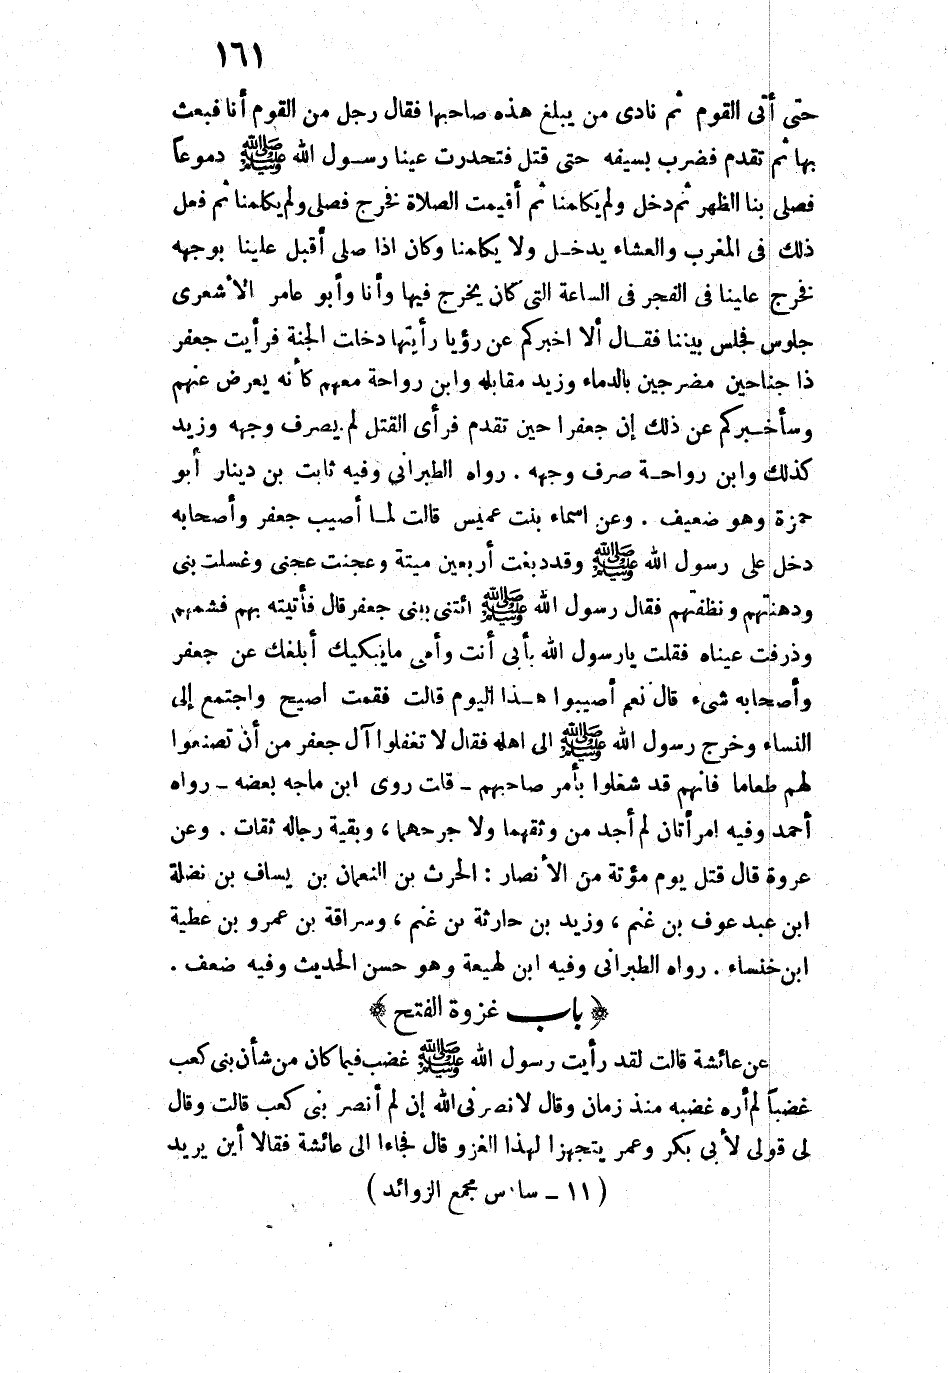 ١٦١
حتى أتى القوم ثم نادى من يبلغ هذه صاحبها فقال رجل من القوم أنا فبعث
بها ثم تقدم فضرب بسيفه حتى قتل فتحدرت عينا رسول الله ﷺ دموعاً
فصلى بنا الظهر ثم دخل ولم يكلمنا ثم أقيمت الصلاة فخرج فصلى ولم يكلمنا ثم فعل
ذلك في المغرب والعشاء يدخل ولا يكلمنا وكان اذا صلى أقبل علينا بوجهه
فخرج علينا في الفجر في الساعة التي كان يخرج فيها وأنا وأبو عامر الأشعرى
جلوس فجلس بيننا فقال ألا اخبركم عن رؤيا رأيتها دخلت الجنة فرأيت جعفر
ذا جناحين مضرجين بالدماء وزيد مقابله وابن رواحة معهم كأنه يعرض عنهم
وسأخبركم عن ذلك إن جعفرا حين تقدم فرأى القتل لم يصرف وجهه وزيد
كذلك وابن رواحة صرف وجهه . رواه الطبراني وفيه ثابت بن دينار أبو
حمزة وهو ضعيف . وعن اسماء بنت عميس قالت لما أصيب جعفر وأصحابه
دخل على رسول الله ﷺ وقد دبغت أربعين ميتة وعجنت عجنى وغسلت بنى
ودهنتهم ونظفتهم فقال رسول الله ﷺ ائتنى ببنى جعفر قال فأتيته بهم فشمهم
وذرفت عيناه فقلت يارسول الله بأبى أنت وأمى مايبكيك أبلغك عن جعفر
وأصحابه شىء قال نعم أصيبوا هذا اليوم قالت فقمت اصيح واجتمع إلى
النساء وخرج رسول الله ﷺ الى اهله فقال لا تغفلوا آل جعفر من أن تصنعوا
لهم طعاما فانهم قد شغلوا بأمر صاحبهم ـ قلت روى ابن ماجه بعضه ـ رواه
أحمد وفيه امرأتان لم أجد من وثقهما ولا جرحهما ، وبقية رجاله ثقات . وعن
عروة قال قتل يوم مؤتة من الأنصار : الحرث بن النعمان بن يساف بن نضلة
ابن عبد عوف بن غنم ، وزيد بن حارثة بن غنم ، وسراقة بن عمرو بن عطية
ابن خنساء . رواه الطبرانى وفيه ابن لهيعة وهو حسن الحديث وفيه ضعف .
﴿ باب غزوة الفتح ﴾
عن عائشة قالت لقد رأيت رسول الله ﷺ غضب فيما كان من شأن بنى كعب
غضباً لم أره غضبه منذ زمان وقال لا نصرنى الله إن لم أنصر بنى كعب قالت وقال
لى قولى لأبى بكر وعمر يتجهزا لهذا الغزو قال فجاءا الى عائشة فقالا أين يريد
( ١١ ـ سادس مجمع الزوائد )